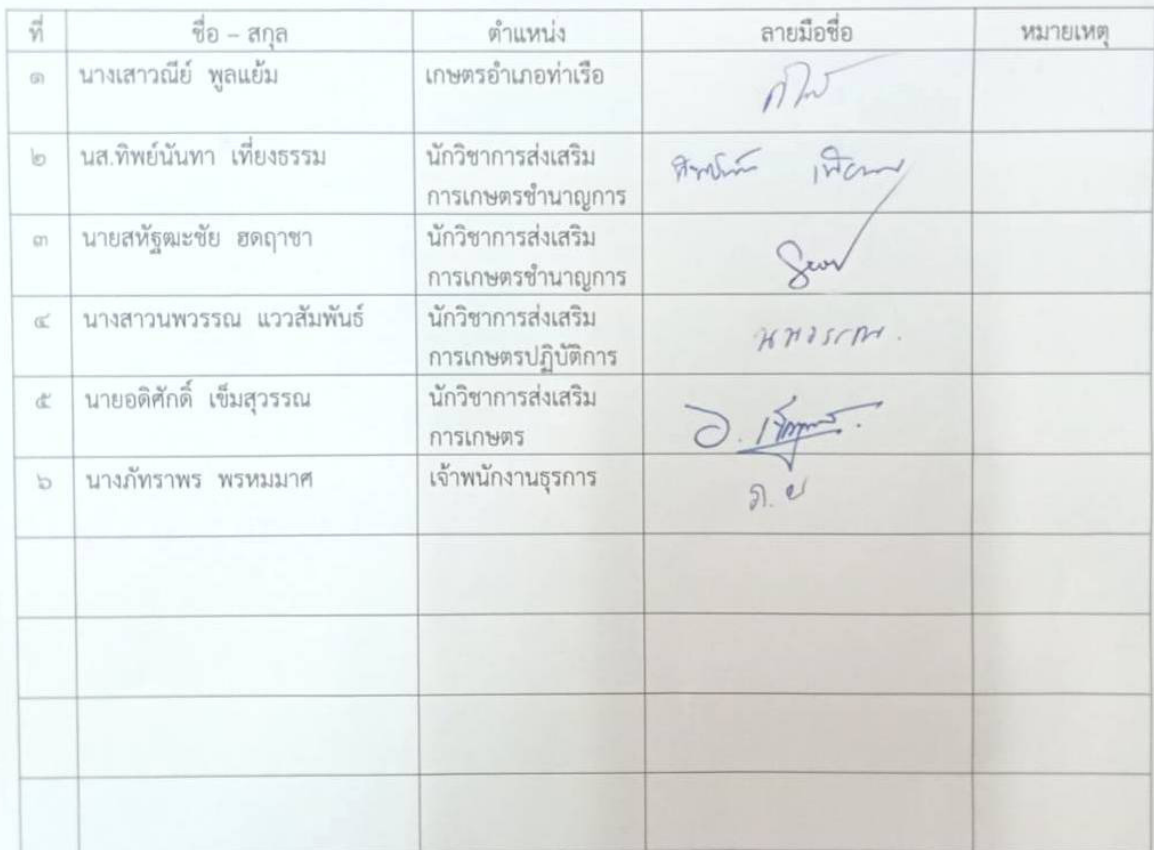 ที่ ชื่อ – สกุล ตำแหน่ง ลายมือชื่อ หมายเหตุ
๑ นางเสาวณีย์ พูลแย้ม เกษตรอำเภอท่าเรือ
๒ นส.ทิพย์นันทา เที่ยงธรรม นักวิชาการส่งเสริม
การเกษตรชำนาญการ
๓ นายสหัฐฒะชัย ฮดฤาชา นักวิชาการส่งเสริม
การเกษตรชำนาญการ
๔ นางสาวนพวรรณ แววสัมพันธ์ นักวิชาการส่งเสริม
การเกษตรปฏิบัติการ นพวรรณ.
๕ นายอดิศักดิ์ เข็มสุวรรณ นักวิชาการส่งเสริม
การเกษตร
๖ นางภัทราพร พรหมมาศ เจ้าพนักงานธุรการ